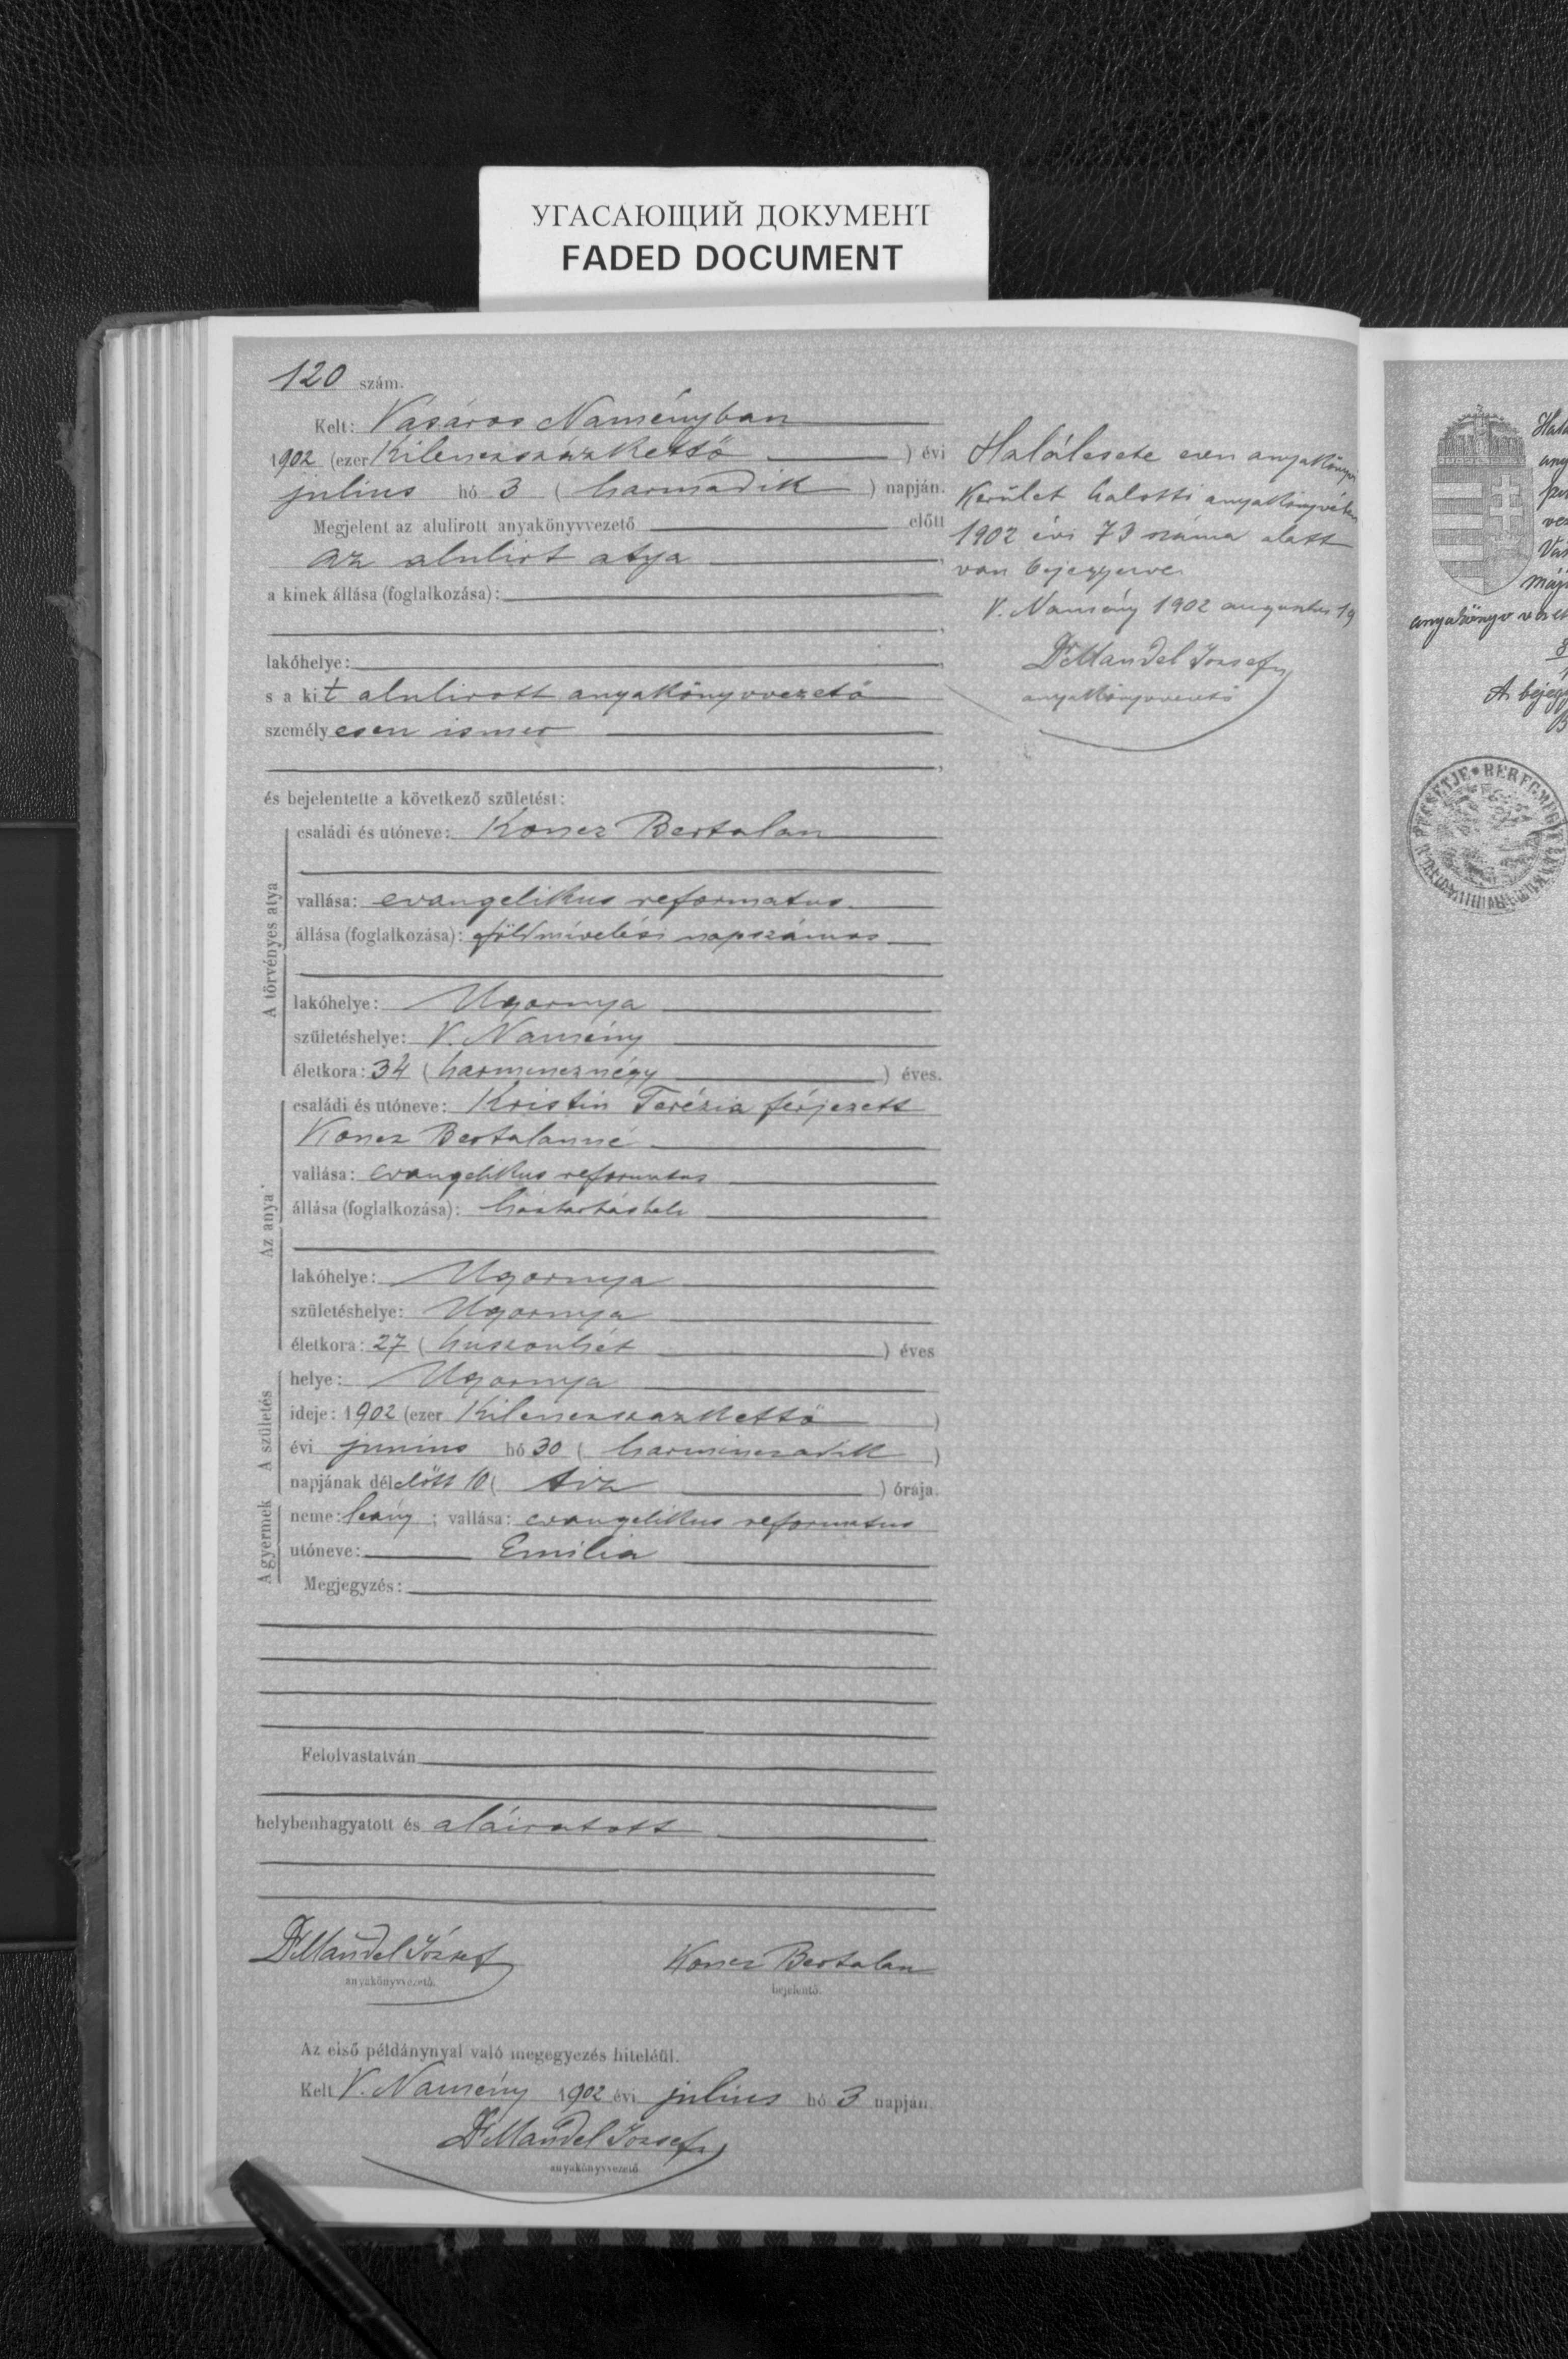 УГАСАЮЩИЙ ДОКУМЕНТ
FADED DOCUMENT
120 szám.
Kelt: Vásáros Naményban
1902 (ezer Kilenczszázkettő ) évi
julius hó 3 ( harmadik ) napján.
Megjelent az alulirott anyakönyvvezető előtt
az alulirt atya
a kinek állása (foglalkozása):
lakóhelye:
s a kit alulirott anyakönyvvezető
személyesen ismer
és bejelentette a következő születést:
A törvényes atya
családi és utóneve: Koncz Bertalan
vallása: evangelikus reformatus
állása (foglalkozása): földmivelési napszámos
lakóhelye: Ugornya
születéshelye: V. Namény
életkora: 34 ( harmincznégy ) éves.
Az anya
családi és utóneve: Kristin Terézia férjezett
Koncz Bertalanné
vallása: evangelikus reformatus
állása (foglalkozása): háztartásbeli
lakóhelye: Ugornya
születéshelye: Ugornya
életkora: 27 ( huszonhét ) éves
A születés
helye: Ugornya
ideje: 1902 (ezer Kilenczszazkettő )
évi junius hó 30 ( harminczadik )
napjának délelőtt 10 ( tiz ) órája.
A gyermek
neme: leány ; vallása: evangelikus reformatus
utóneve: Emilia
Megjegyzés:
Felolvastatván
helybenhagyatott és aláiratott
Dr Mandel József
anyakönyvvezető.
Koncz Bertalan
bejelentő.
Az első példánynyal való megegyezés hiteléül.
Kelt V. Namény 1902 évi julius hó 3 napján.
Dr Mandel József
anyakönyvvezető
Halálesete ezen anyakönyvi
Kerület halotti anyakönyvében
1902 évi 73 száma alatt
van bejegyezve.
V. Namény 1902 augusztus 19
Dr Mandel József
anyakönyvvezető
anyakönyv
A bejegy